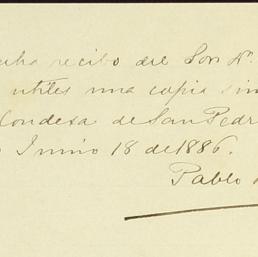 recibo del Sor Dn.
utiles una copia sim
Condesa de San Pedr
Junio 18 de 1886.
Pablo